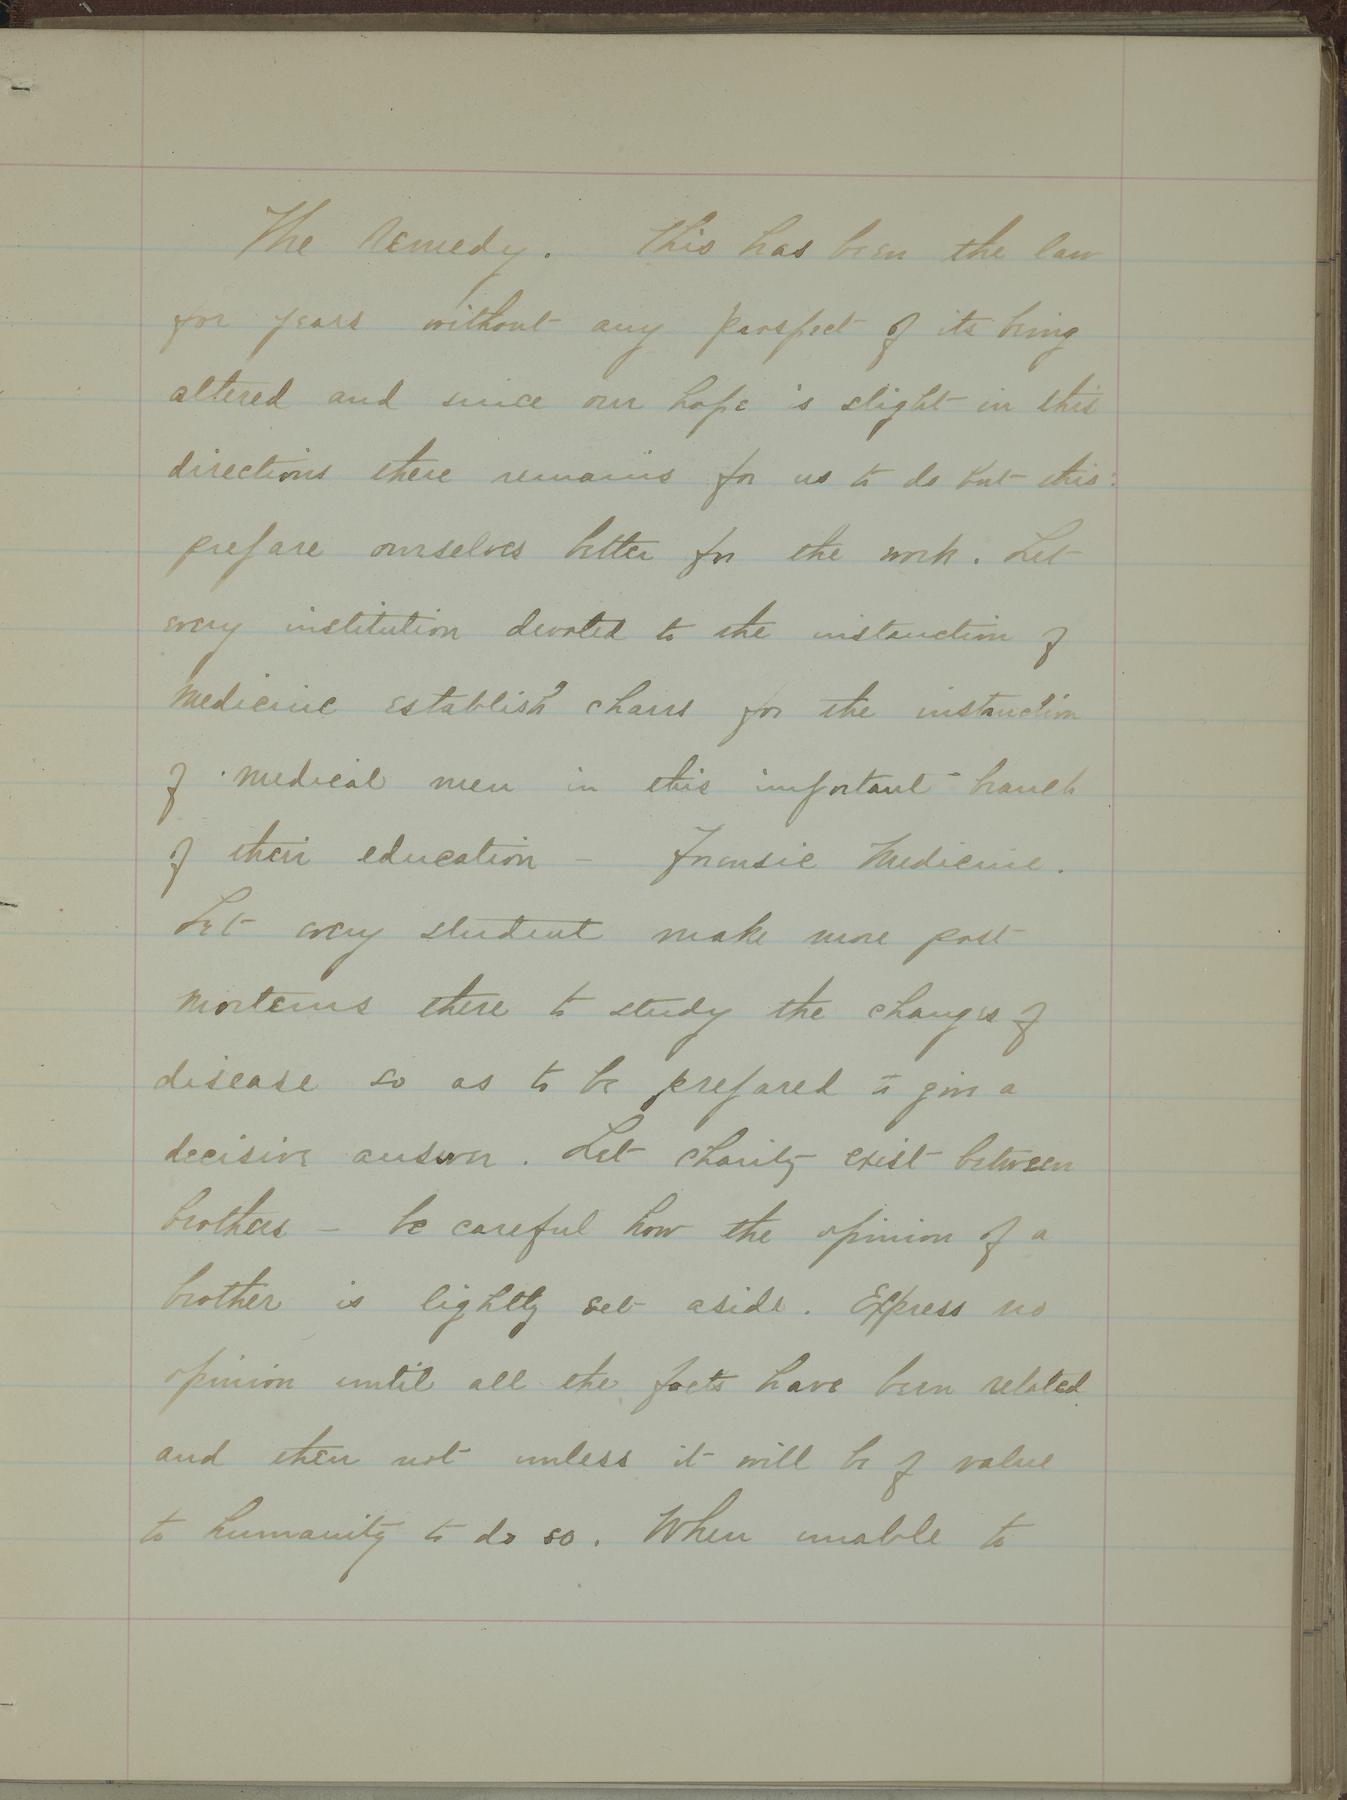 The Remedy. This has been the law
for years without any prospect of its being
altered and since our hope is slight in this
directions there remains for us to do but this:
prepare ourselves better for the work. Let
every institution devoted to the instruction of
Medicine establish chairs for the instruction
of medical men in this important branch
of their education – Forensic Medicine.
Let every student make more post
mortems there to study the changes of
disease so as to be prepared to give a
decisive answer. Let charity exist between
brothers – be careful how the opinion of a
brother is lightly set aside. Express no
opinion until all the facts have been related
and then not unless it will be of value
to humanity to do so. When unable to